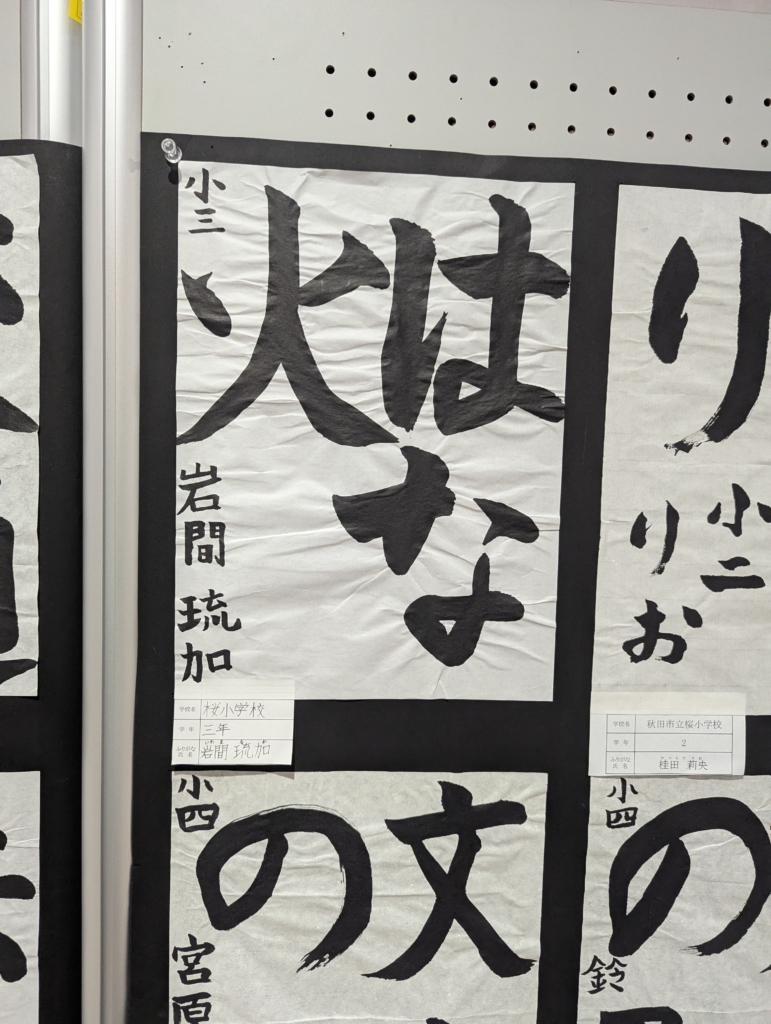 はな
火
小三
岩間 琉加
学校名 桜小学校
学年 三年
ふりがな
氏名 岩間 琉加
り
小二
りお
学校名 秋田市立桜小学校
学年 2
ふりがな
氏名 桂田 莉央
文
の
小四
宮原
の
小四
鈴